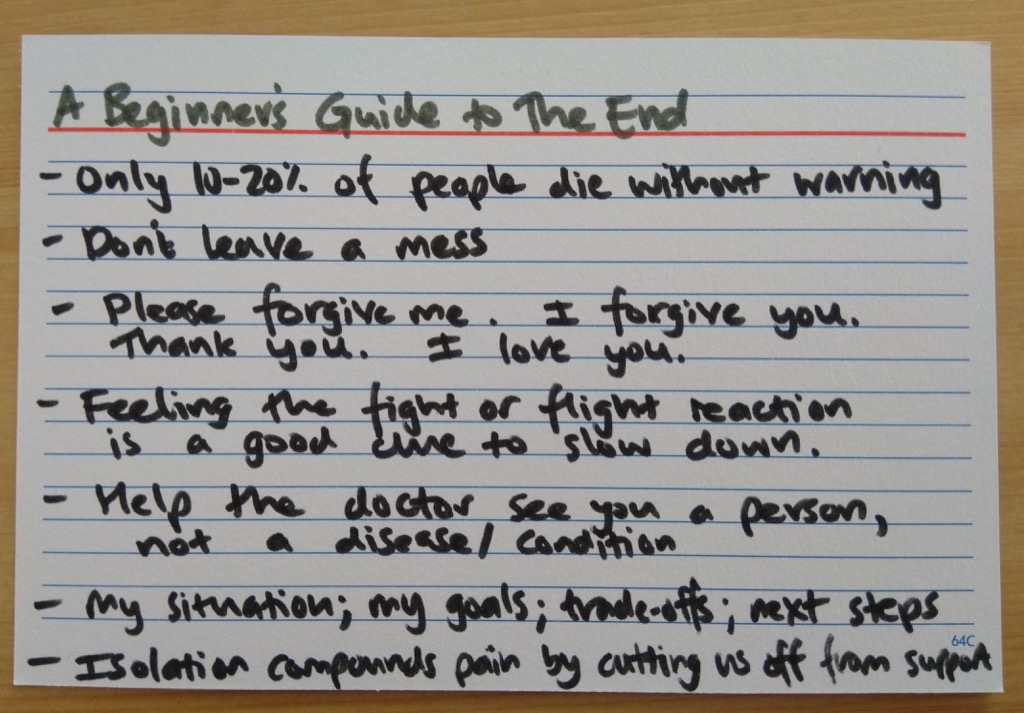 A Beginner's Guide to The End
- Only 10-20% of people die without warning
- Don't leave a mess
- Please forgive me. I forgive you.
Thank you. I love you.
- Feeling the fight or flight reaction
is a good clue to slow down.
- Help the doctor see you a person,
not a disease/condition
- My situation; my goals; trade-offs; next steps
64C
- Isolation compounds pain by cutting us off from support